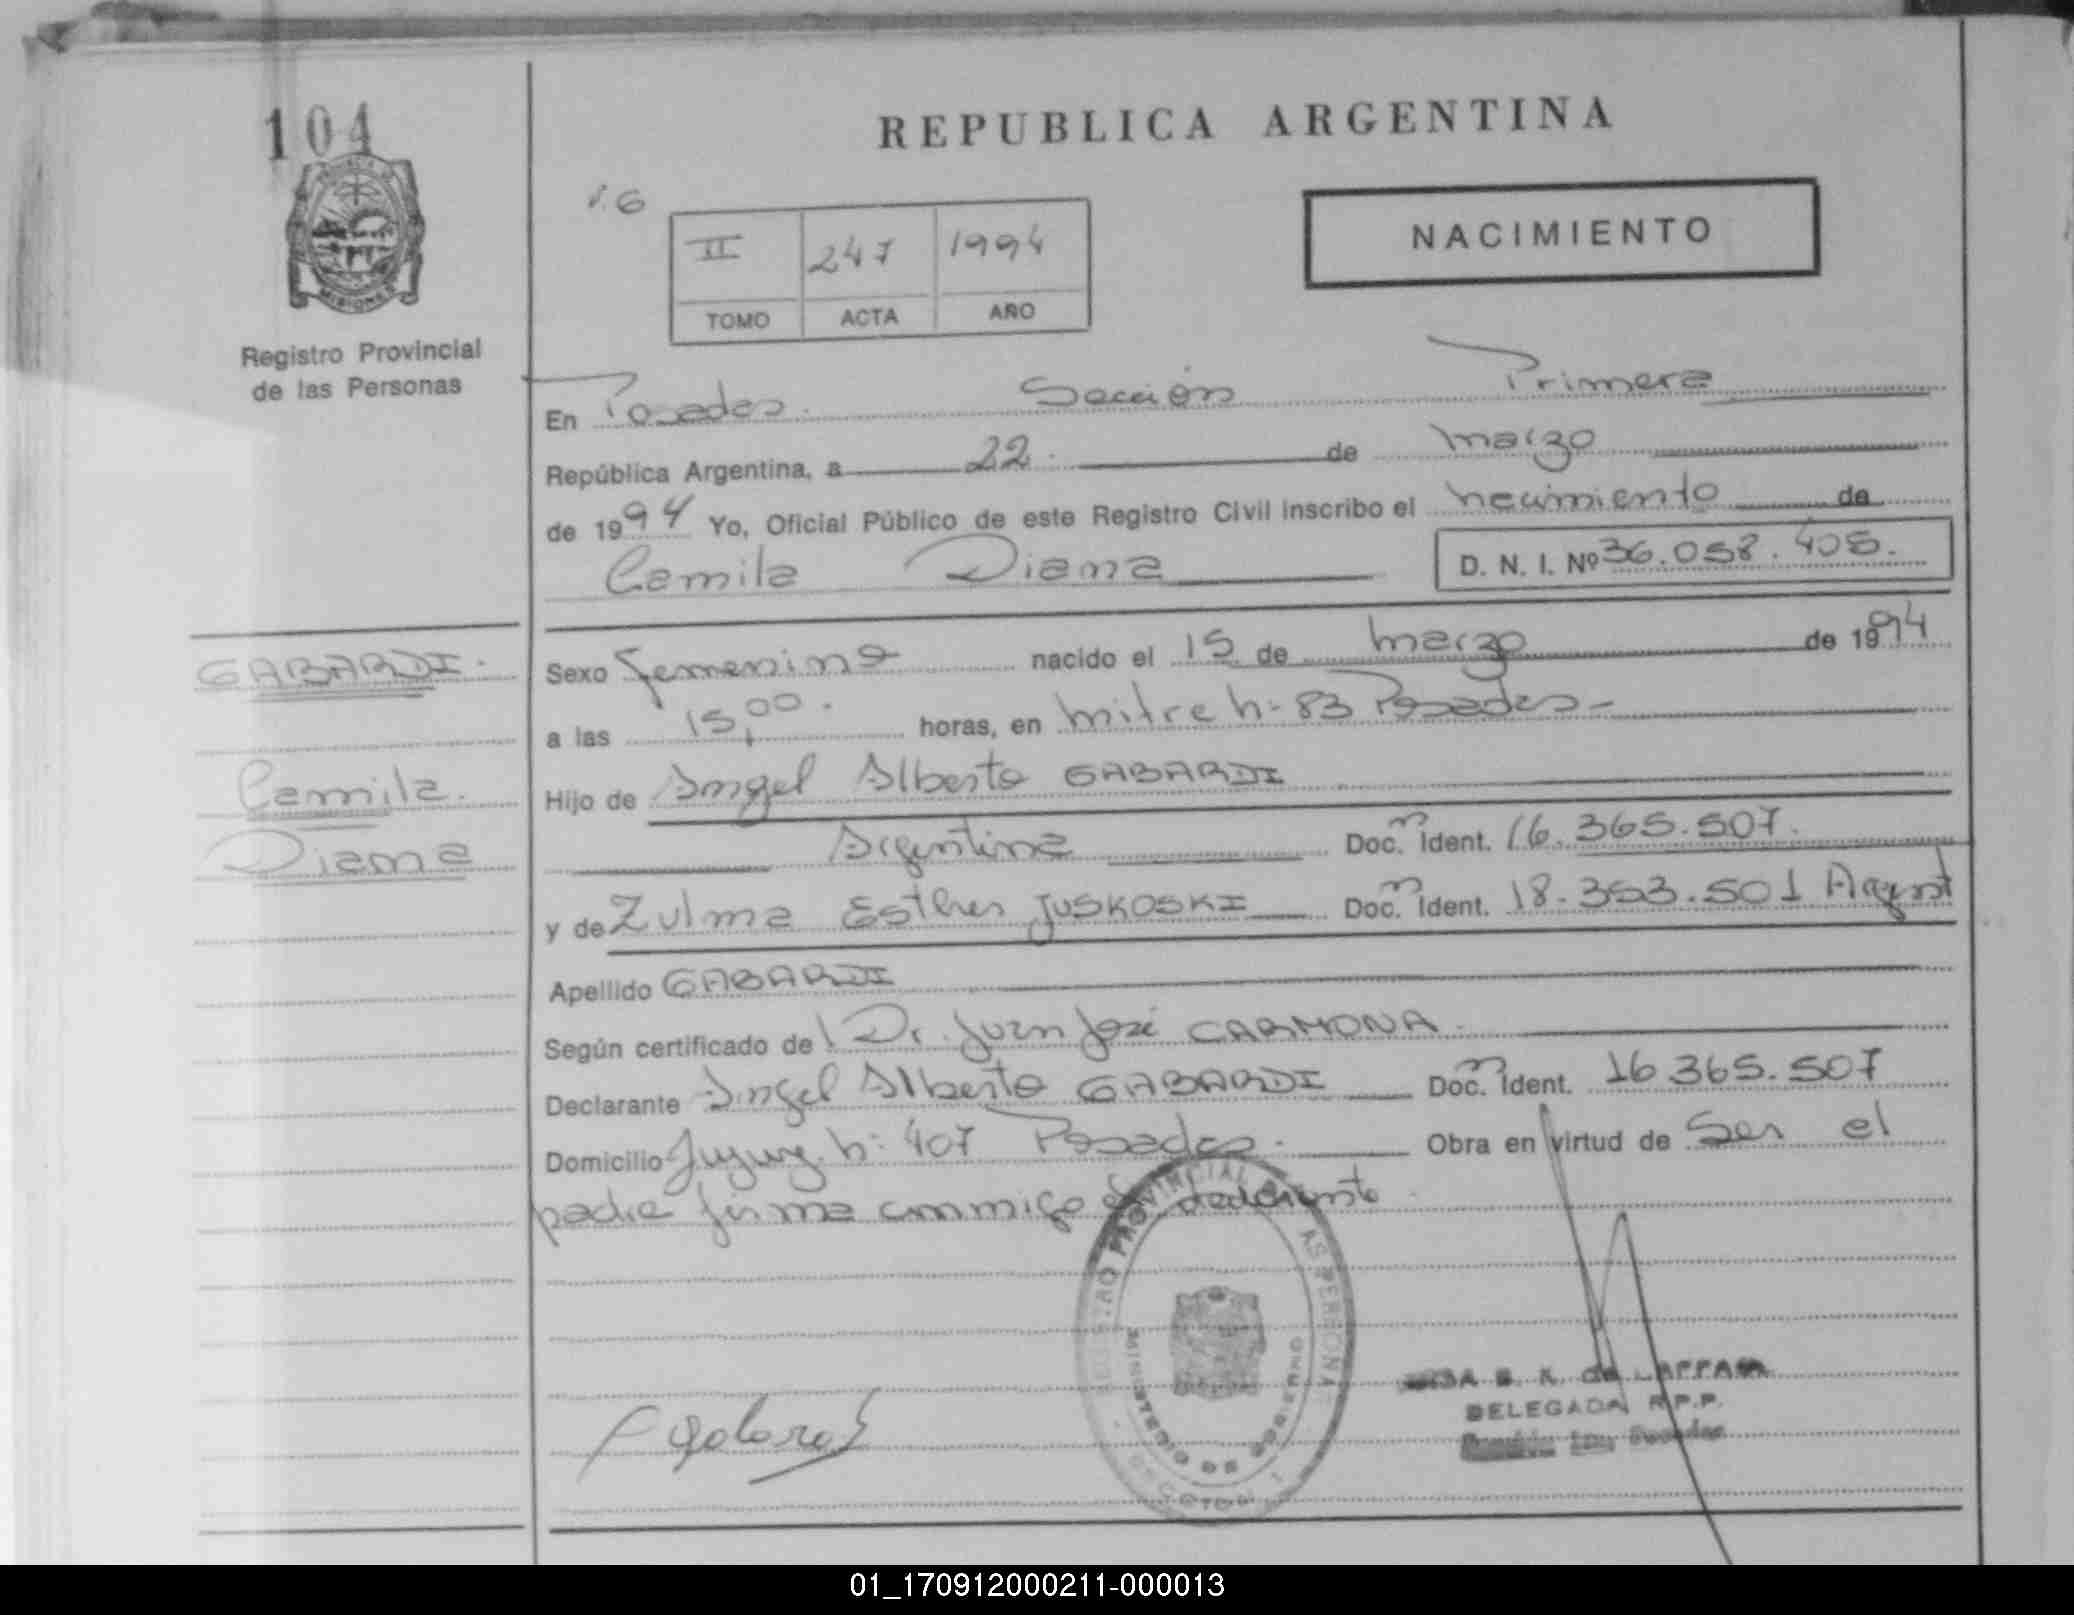 104
REPUBLICA ARGENTINA
MISIONES
Registro Provincial
de las Personas
II 247 1994
TOMO ACTA AÑO
NACIMIENTO
En Posadas. Sección Primera
República Argentina, a 22. de marzo
de 1994 Yo, Oficial Público de este Registro Civil inscribo el nacimiento de
Camila Diana D. N. I. Nº 36.058.408.
GABARDI.
Sexo femenino nacido el 15 de marzo de 1994
a las 15,00. horas, en mitre n: 83 Posadas-
Camila.
Hijo de Angel Alberto GABARDI
Diana
Argentina Doc. m Ident. 16.365.507.
y de Zulma Esther JUSKOSKI Doc. m Ident. 18.353.501 Argent
Apellido GABARDI
Según certificado de l Dr. Juan José CARMONA.
Declarante Angel Alberto GABARDI Doc. m Ident. 16 365.507
Domicilio Jujuy n: 407 Posadas. Obra en virtud de Ser el
padre firma conmigo el declarante.
REGISTRO PROVINCIAL AS PERSONAS
MINISTERIO DE GOBIERNO
DELEGADA R.P.P.
01_170912000211-000013